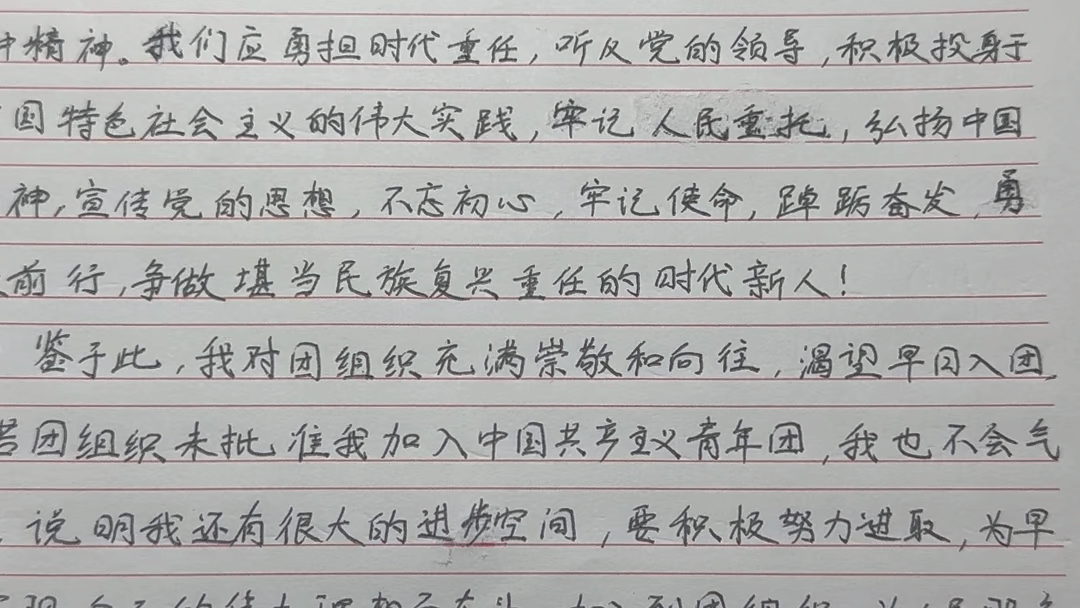 精神。我们应勇担时代重任，听从党的领导，积极投身于
国特色社会主义的伟大实践，牢记人民重托，弘扬中国
神，宣传党的思想，不忘初心，牢记使命，踔跞奋发，勇
前行，争做堪当民族复兴重任的时代新人！
鉴于此，我对团组织充满崇敬和向往，渴望早日入团，
若团组织未批准我加入中国共产主义青年团，我也不会气
说明我还有很大的进步空间，要积极努力进取，为早